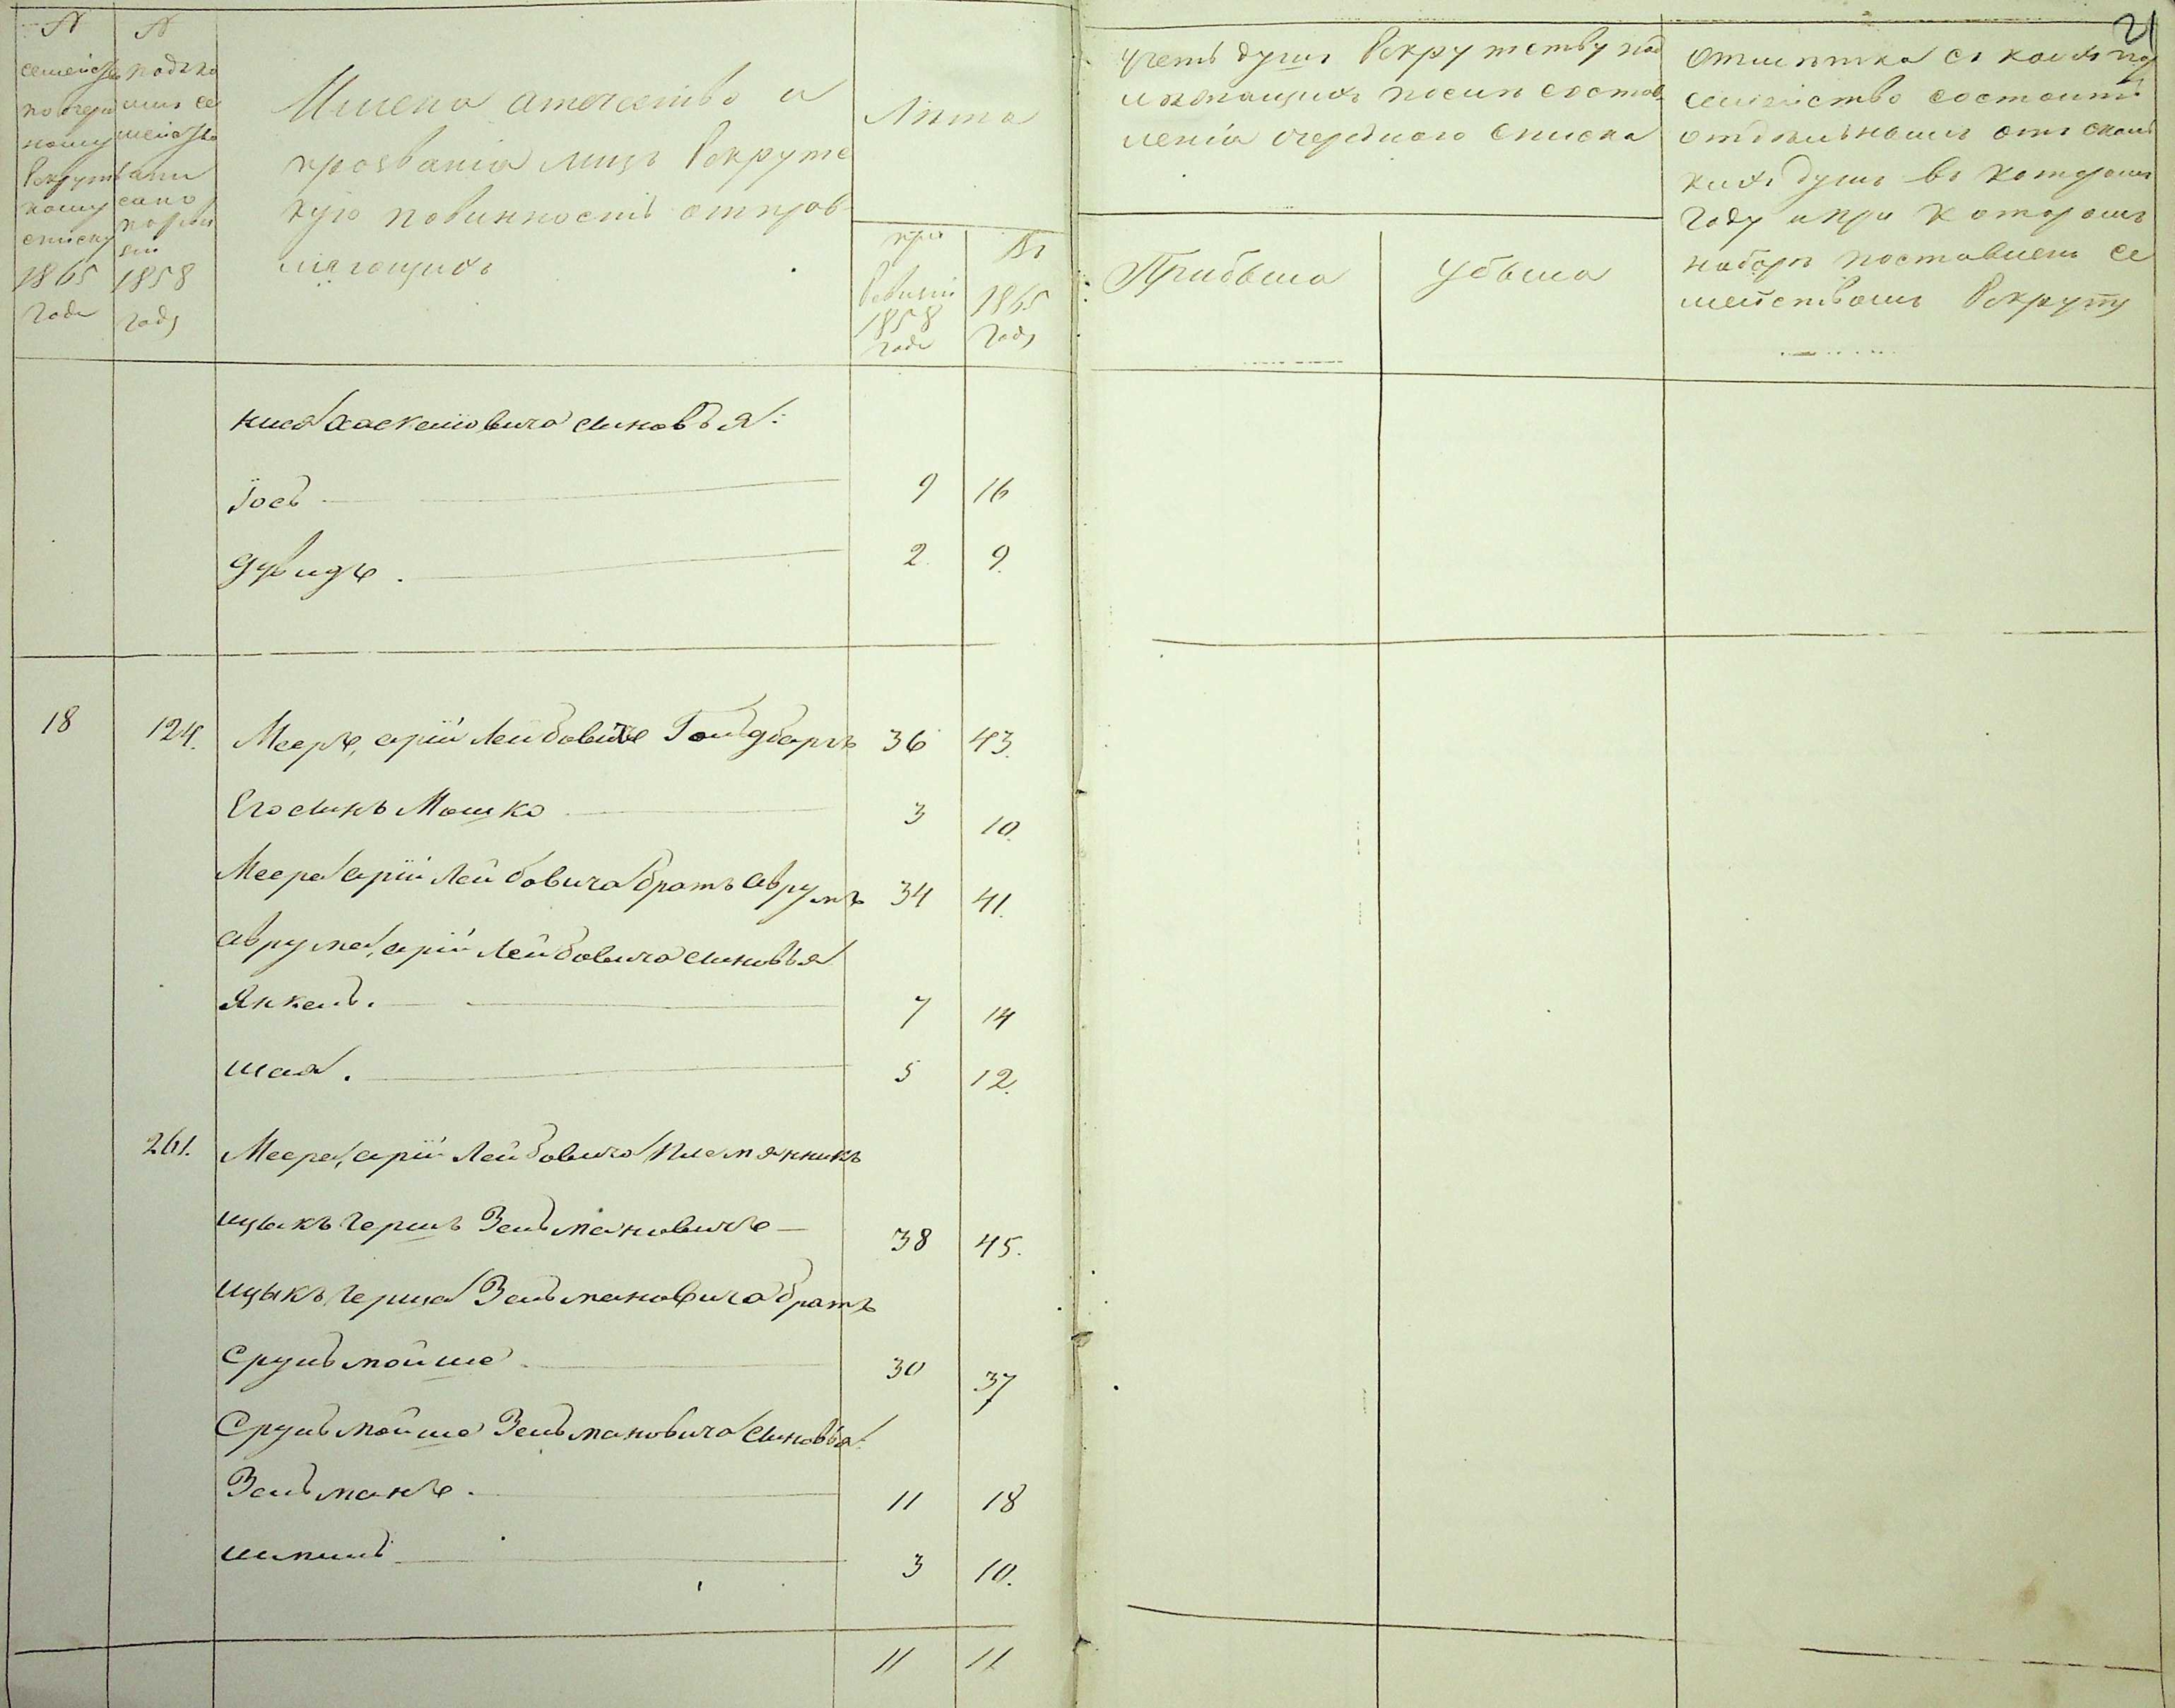 №
семейства
по очеред
ному
Рекрут
кому
списку
1865
года
№
подъ ко
имъ се
мейство
запи
сано
по реви
зіи
1858
году
Имена отечество и
прозванія лицъ Рекрутс
кую повинность отправ
ляющихъ
Лѣта
при
Ревизіи
1858
года
Въ
1865
году
21
Учетъ душъ Рекрутству над
лежащихъ послѣ состав
ленія очереднаго списка
Прибыла
Убыла
Отмѣтка съ коихъ поръ
семейство состоитъ
отдѣльнымъ отъ сколь
кихъ душъ въ которомъ
году и при которомъ
наборѣ поставлен се
мействомъ Рекрутъ
Хаскелiовича синовъя:
Iось 9 16
Дувидъ. 2 9.
18 124. Мееръ, арiй Лейбовичъ Гольдбергъ 36 43.
Его синъ Мошко 3 10.
Меера арiй Лейбовича братъ аврумъ 34 41.
аврума, арiй Лейбовича синовья
Янкель. 7 14
шая. 5 12.
261. Меера, арiй Лейбовича племянникъ
ицыкъ гершъ Зельмановичъ 38 45.
ицыкъ герша Зельмановича братъ
сруль мойше 30 37
Сруль мойше Зельмановича синовья:
Зельманъ. 11 18
шмиль 3 10.
11 11